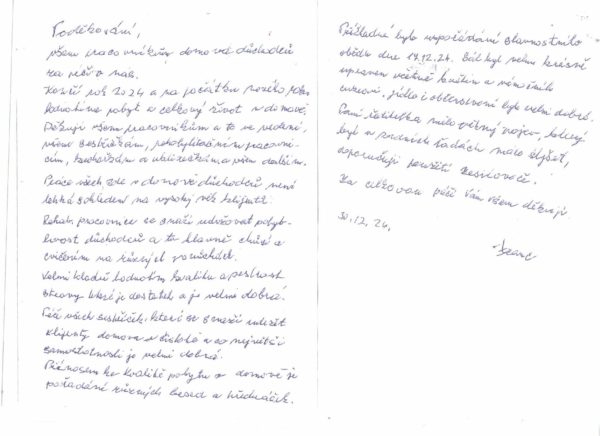 Poděkování,
všem pracovníkům domova důchodců
za péči o nás.
Končí rok 2024 a na počátku nového roku
hodnotíme pobyt a celkový život v domově.
Děkuji všem pracovníkům a to ve vedení,
všem sestřičkám, rehabilitačním pracovni-
cím, kuchařkám a uklízečkám a všem dalším.
Práce všech zde v domově důchodců není
lehká s ohledem na vysoký věk klientů.
Rehab. pracovnice se snaží udržovat pohyb-
livost důchodců a to hlavně chůzí a
cvičením na různých pomůckách.
Velmi kladně hodnotím kvalitu a pestrost
stravy které je dostatek a je velmi dobrá.
Péče všech sestřiček, které se snaží udržet
klienty domova v čistotě a co největší
samostatnosti je velmi dobrá.
Přínosem ke kvalitě pobytu v domově je
pořádání různých besed a přednášek.
Příkladné bylo uspořádání slavnostního
obědu dne 17.12.24. Sál byl velmi krásně
upraven včetně květin a vánočního
cukroví, jídlo i občerstvení byly velmi dobré.
Paní ředitelka měla pěkný projev, který
byl v zadních řadách málo slyšet,
doporučuji použití zesilovače.
Za celkovou péči Vám všem děkuji
30.12.24.